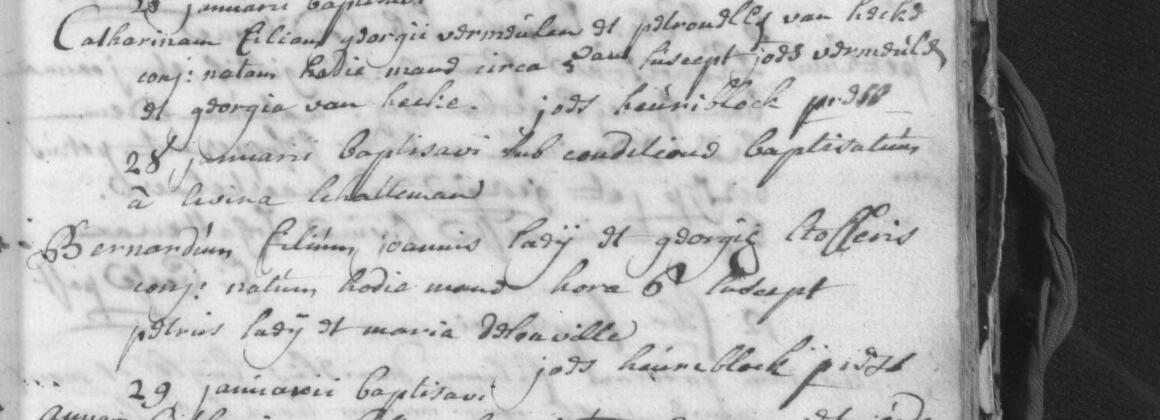 28 januarii baptisavi
Catharinam filiam georgii vermeulen et petronelle van hecke
conj: natam hodie mane circa suscept joes vermeule
et georgia van hecke. joes heuriblock
28 januarii baptisavi sub conditione baptisatum
à livina schatteman
Bernardum filium joannis ladÿ et georgiæ stofferis
conj: natum hodie mane hora 6ª suscept
petrus ladÿ et maria
joes heuriblock
29 januarii baptisavi